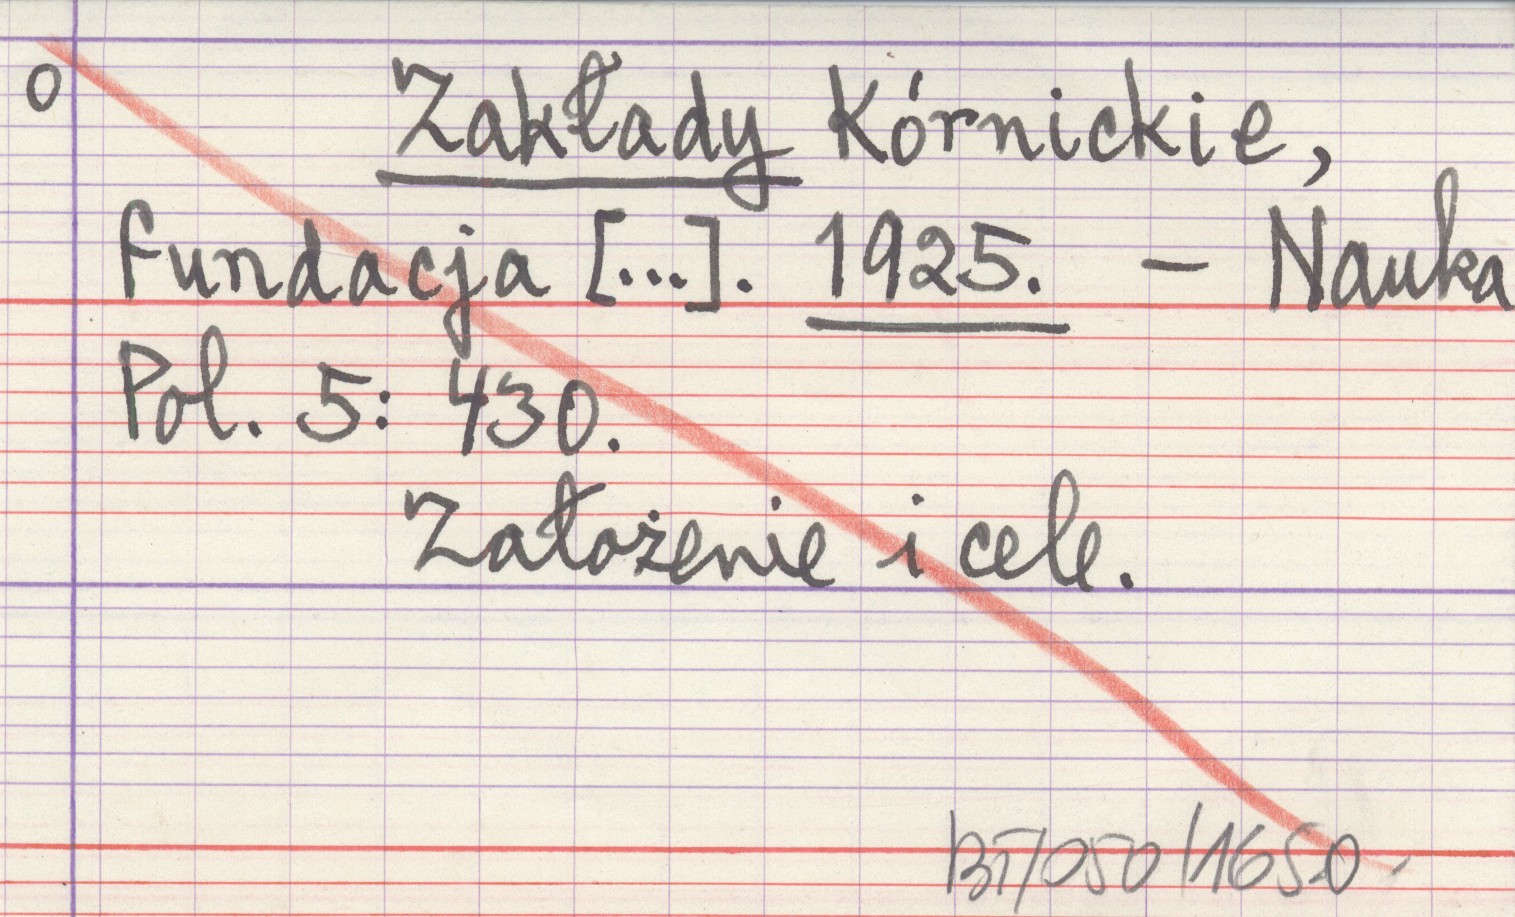 o Zakłady Kórnickie,
fundacja [...]. 1925. – Nauka
Pol. 5: 430.
Założenie i cele.
BT/050/1650